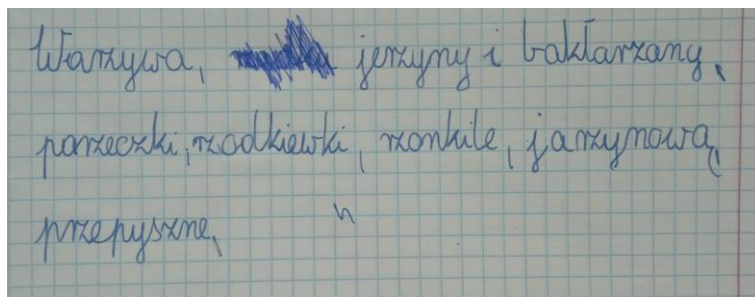 Warzywa, jerzyny i bakłarzany,
porzeczki, rzodkiewki, rzonkile, jarzynową,
przepyszne,